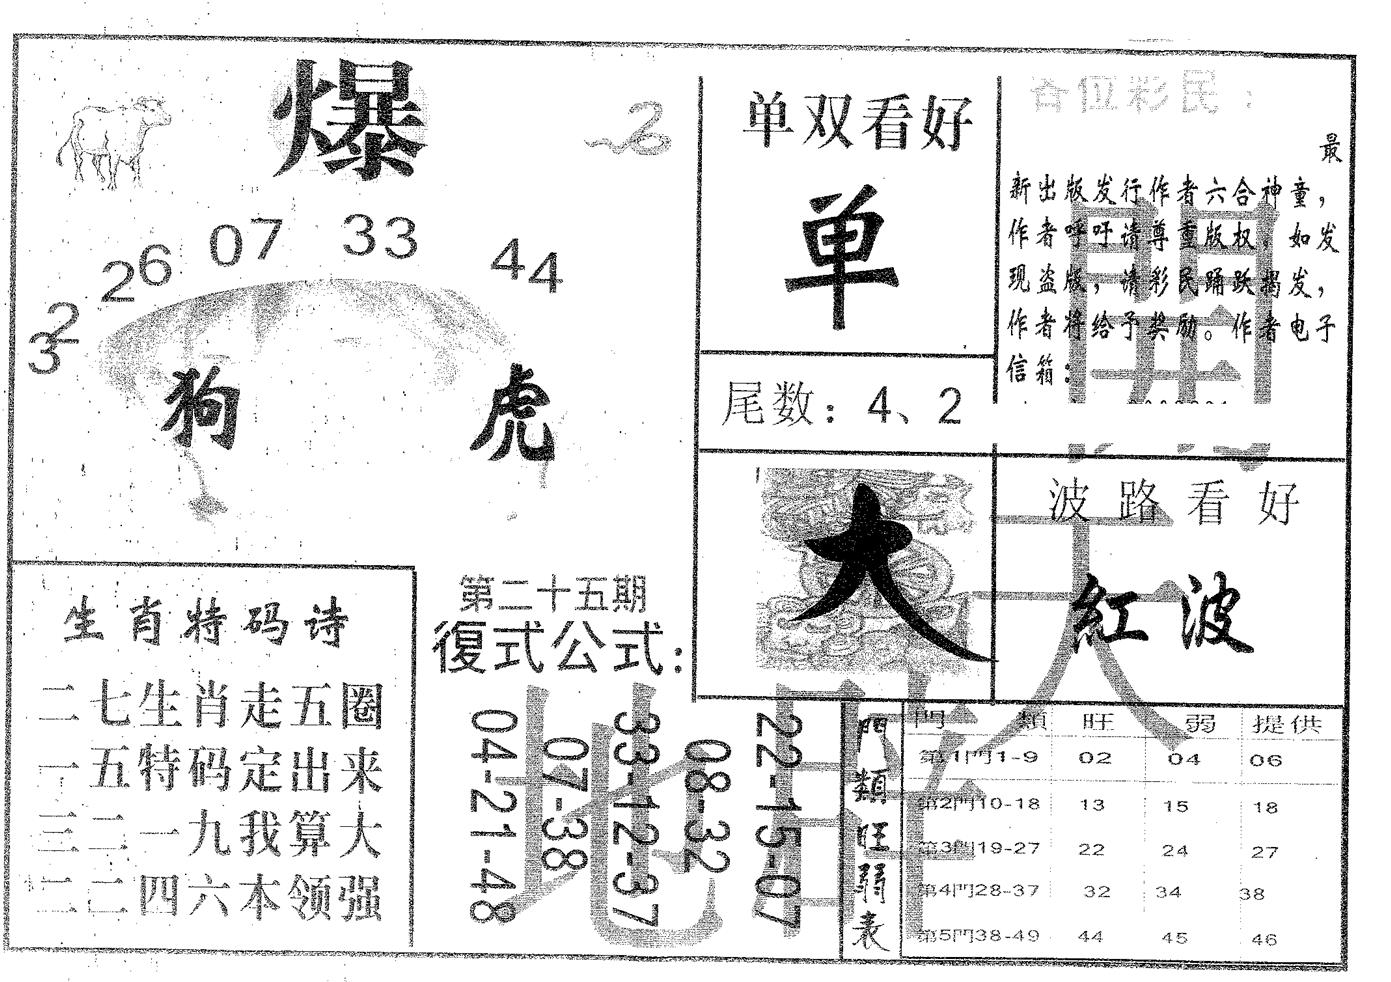 爆
2
32 26 07 33 44
狗 虎
单双看好
单
尾数：4、2
各位彩民：
最
新出版发行作者六合神童，
作者呼吁请尊重版权。如发
现盗版，请彩民踊跃揭发，
作者将给予奖励。作者电子
信箱：
大
波路看好
紅波
生肖特码诗
二七生肖走五圈
一五特码定出来
三二一九我算大
二二四六本领强
第二十五期
復式公式:
04-21-48
07-38
33-12-37
08-32
22-15-07
門類旺弱表
門類 旺 弱 提供
第1門1-9 02 04 06
第2門10-18 13 15 18
第3門19-27 22 24 27
第4門28-37 32 34 38
第5門38-49 44 45 46